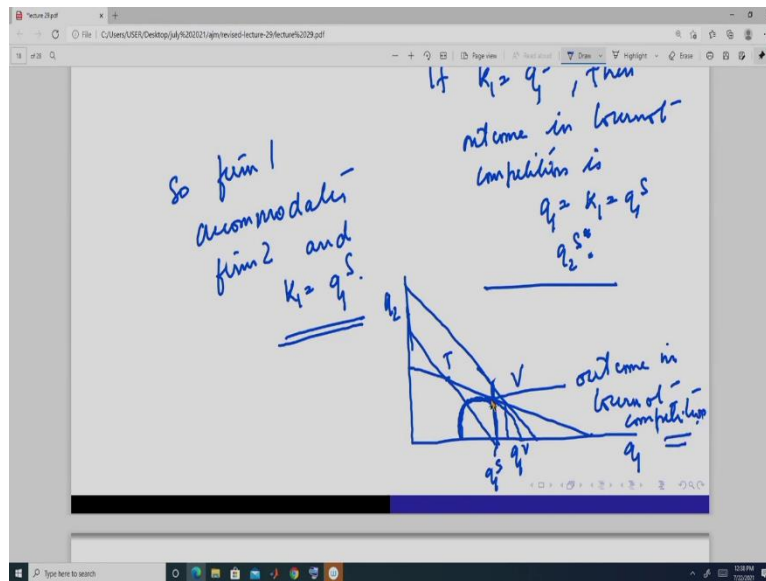 lecture 29.pdf
File | C:/Users/USER/Desktop/july%202021/ajm/revised-lecture-29/lecture%2029.pdf
18 of 28
Page view
Read aloud
Draw
Highlight
Erase
If K₁ = q₁ˢ, Then
outcome in Cournot-
competition is
q₁ = K₁ = q₁ˢ
q₂ˢ*.
So firm 1
accommodates
firm 2 and
K₁ = q₁ˢ.
q₂
T
V
outcome in
Cournot-
competition
q₁ˢ
q₁ⱽ
q₁
Type here to search
12:38 PM
7/22/2021